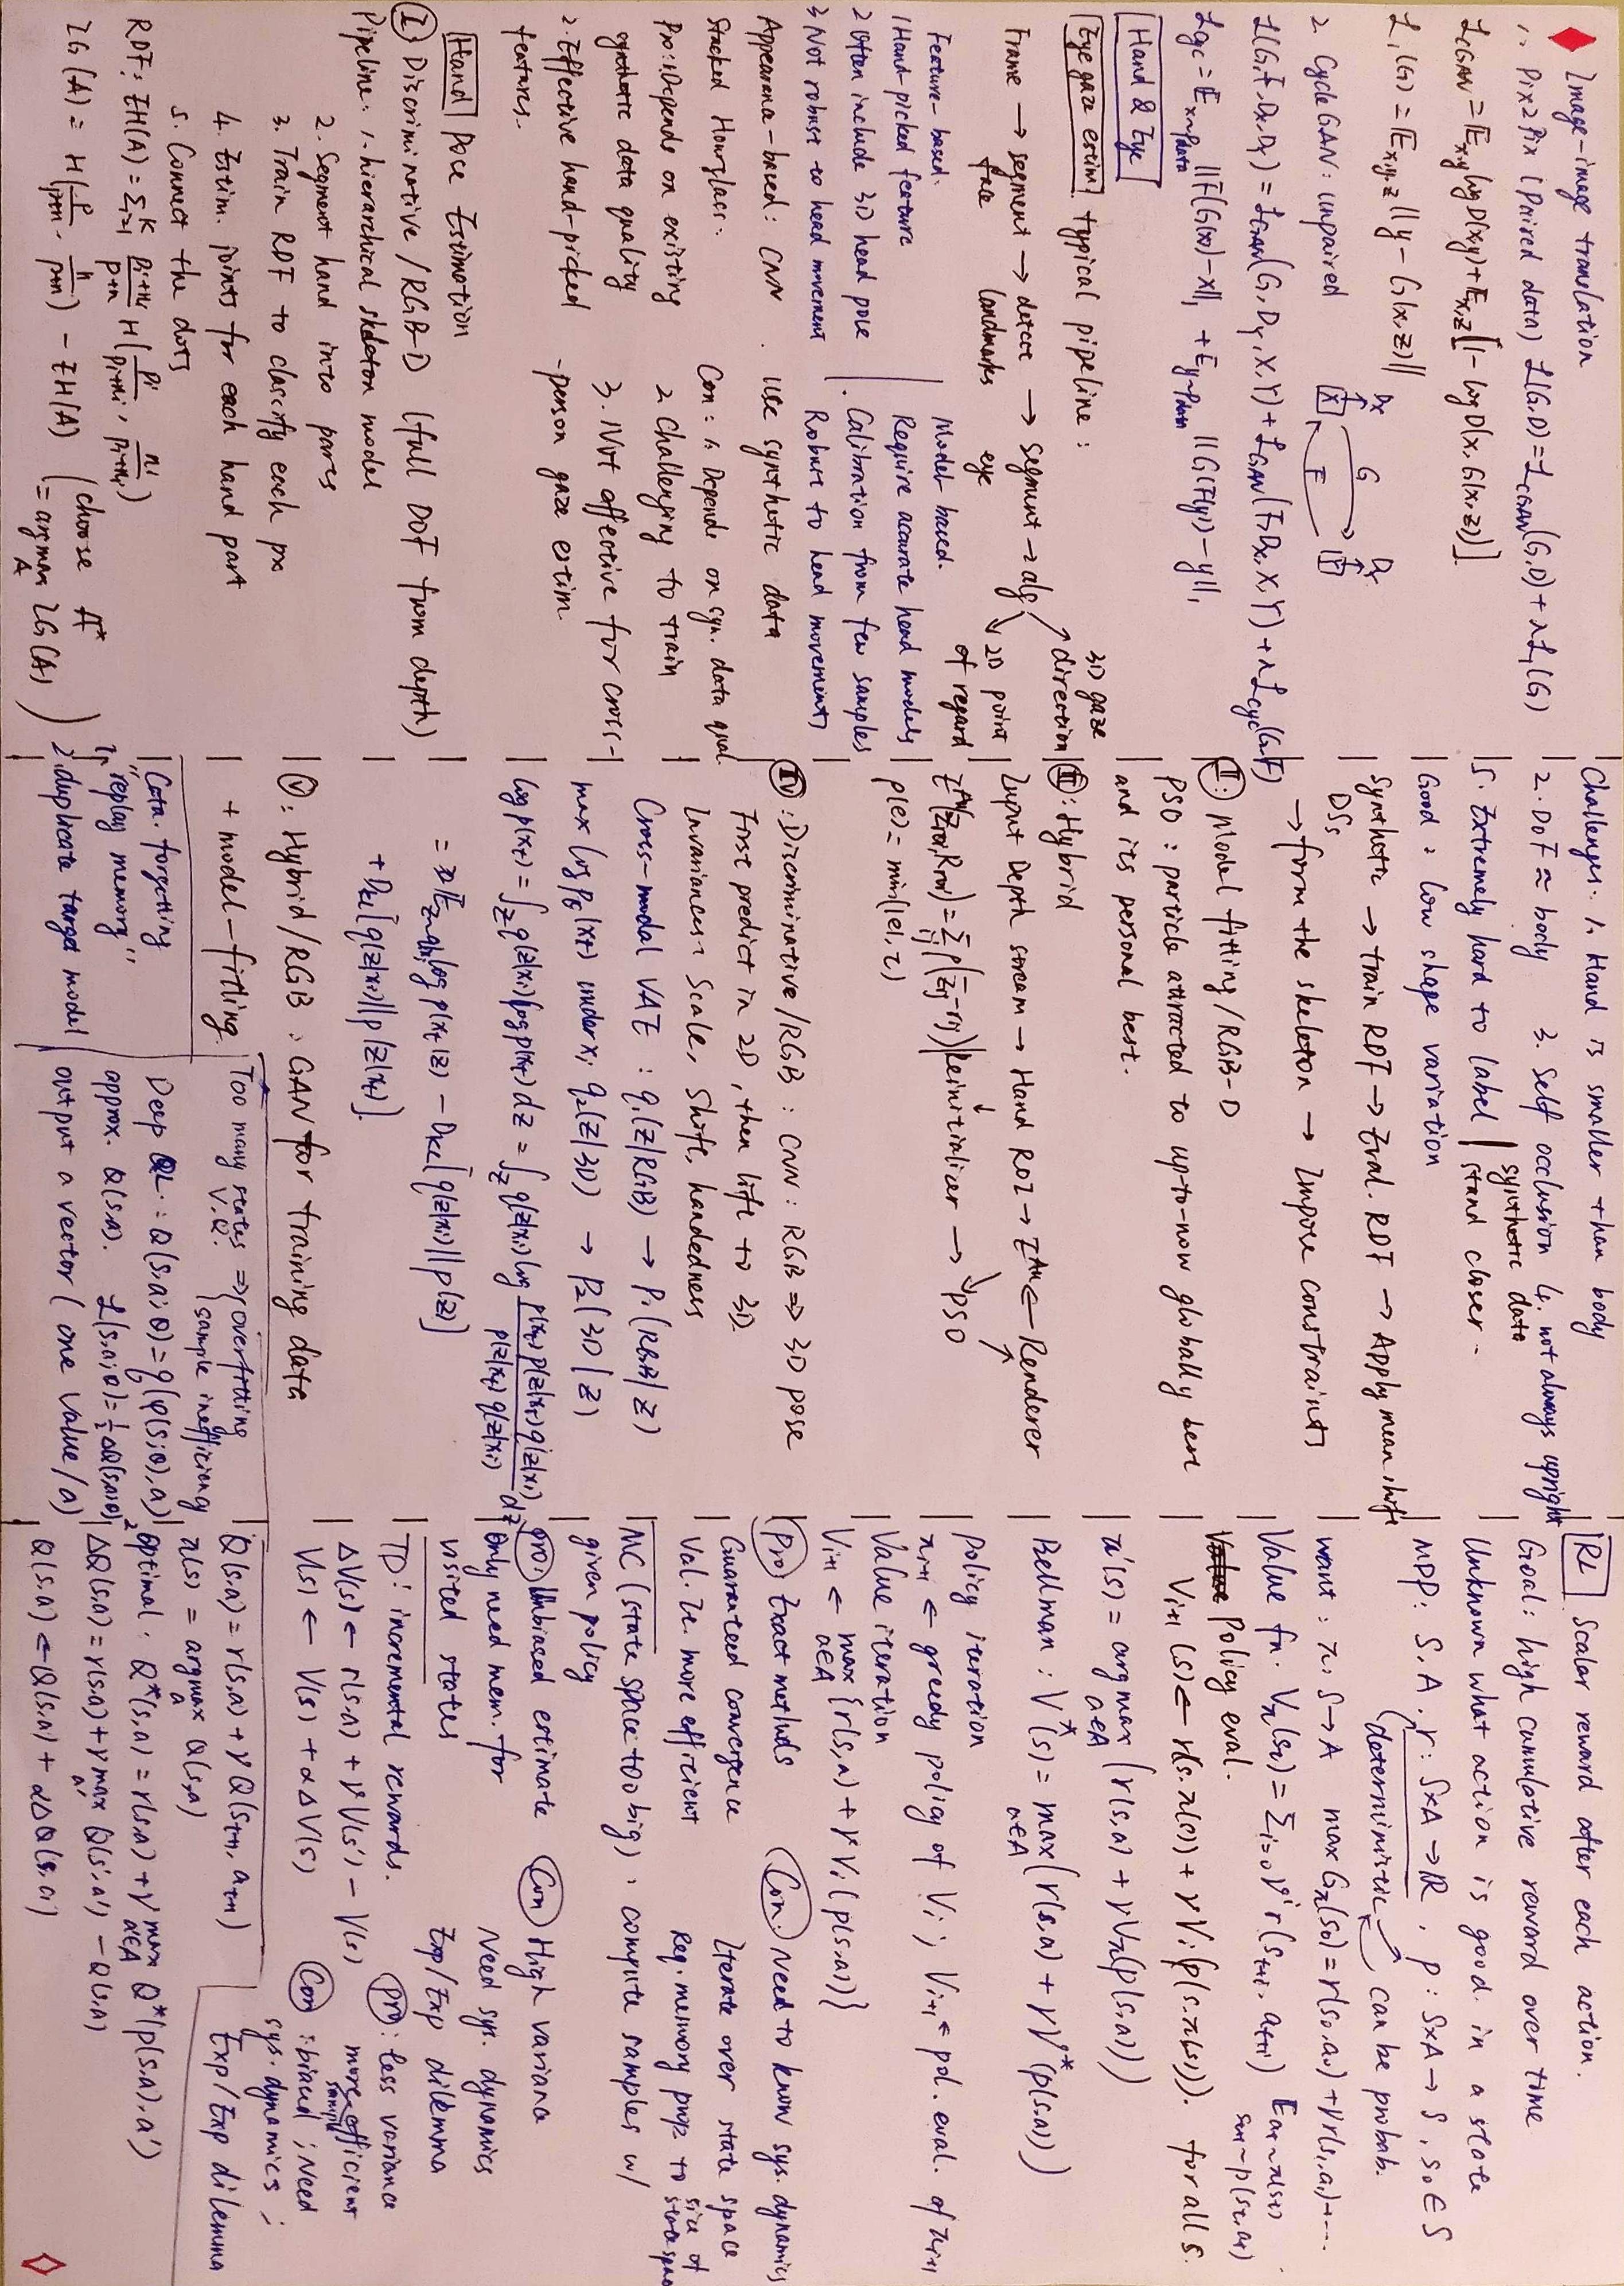 Image-image translation
1. Pix2Pix (Paired data) ℒ(G,D) = ℒcGAN(G,D) + λℒ₁(G)
ℒcGAN = 𝔼x,y log D(x,y) + 𝔼x,z[1 - log D(x, G(x,z))].
ℒ₁(G) = 𝔼x,y,z ||y - G(x,z)||
2. CycleGAN: unpaired
Dx G Dy
X F Y
ℒ(G,F,Dx,Dy) = ℒGAN(G,Dy,X,Y) + ℒGAN(F,Dx,X,Y) + λℒcyc(G,F)
ℒcyc = 𝔼x~pdata ||F(G(x)) - x||₁ + 𝔼y~pdata ||G(F(y)) - y||₁
Hand & Eye
Eye gaze estim typical pipeline:
Frame → segment face → detect landmarks → segment eye → alg
3D gaze direction
2D point of regard
Feature-based.
1 Hand-picked feature
2 Often include 3D head pose
3 Not robust to head movement
Model based.
Require accurate head models
Calibration from few samples
Robust to head movements
Appearance-based: CNN. Use synthetic data
Stacked Hourglass.
Pro: 1. Depends on existing
synthetic data quality
2. Effective hand-picked
features.
Con: 1. Depends on syn. data qual
2 Challenging to train
3. Not effective for cross-
-person gaze estim.
Hand Pose Estimation
Ⓘ Discriminative/RGB-D (full DOF from depth)
Pipeline: 1. hierarchical skeleton model
2. Segment hand into parts
3. Train RDF to classify each px
4. Estim. joints for each hand part
5. Connect the dots
RDF: EH(A) = Σᵢ₌₁ᴷ (pi+ni)/(p+n) H(pi/(pi+ni), ni/(pi+ni))
IG(A) = H(p/(p+n), n/(p+n)) - EH(A) (choose A* = argmax_A IG(A))
Challenges. 1. Hand is smaller than body
2. DoF ≈ body 3. Self occlusion 4. not always upright
5. Extremely hard to label | synthetic data
stand closer.
Good: low shape variation
Synthetic DSs → train RDF → Eval. RDF → Apply mean shift
→ form the skeleton → Impose constraints
Ⅱ: Model fitting/RGB-D
PSO: particle attracted to up-to-now globally best
and its personal best.
Ⅲ: Hybrid
Input Depth stream → Hand ROI → Eᴬᵘ ← Renderer
Eᴬᵘ(Zroi, Rroi) = Σij ρ(zij - rij) | Reinitializer → PSO
ρ(e) = min(|e|, τ)
Ⅳ: Discriminative/RGB: CNN: RGB ⇒ 3D pose
First predict in 2D, then lift to 3D.
Invariances: Scale, Shift, handedness
Cross-modal VAE: q₁(z|RGB) → p₁(RGB|z)
max log pθ(xt) under xi q₂(z|3D) → p₂(3D|z)
log p(xt) = ∫z q(z|xi) log p(xt) dz = ∫z q(z|xi) log p(xt) p(z|xt) q(z|xi) / p(z|xt) q(z|xi) dz
= 𝔼z~q(z|xi) log p(xt|z) - DKL[q(z|xi)||p(z)]
+ DKL[q(z|xi)||p(z|xt)].
Ⅴ: Hybrid/RGB: GAN for training data
+ model-fitting
Cata. forgetting
1. "replay memory"
2. duplicate target model
Too many states V,Q. ⇒ overfitting
sample inefficiency
Deep QL: Q(s,a;θ) = q(φ(s;θ),a)
approx. Q(s,a). ℒ(s,a;θ) = ½ΔQ(s,a;θ)²
output a vector (one value/a)
RL Scalar reward after each action.
Goal: high cumulative reward over time
Unknown what action is good in a state
MDP: S, A, r: S×A → ℝ, p: S×A → S, s₀ ∈ S
(deterministic) → can be probab.
want: π: S→A max Gπ(s₀) = r(s₀,a₀) + γr(s₁,a₁) + ...
Value fn. Vπ(st) = Σi≥0 γⁱ r(st+i, at+i) 𝔼at~π(st) st+1~p(st,at)
Policy eval.
Vi+1(s) ← r(s,π(s)) + γVi(p(s,π(s))). for all s.
π'(s) = argmax a∈A (r(s,a) + γVπ(p(s,a)))
Bellman: V*(s) = max a∈A (r(s,a) + γV*(p(s,a)))
Policy iteration
πi+1 ← greedy policy of Vi; Vi+1 ← pol. eval. of πi+1
Value iteration
Vi+1 ← max a∈A {r(s,a) + γVi(p(s,a))}
Pro Exact methods
Guaranteed convergence
Val. It. more efficient
Con. Need to know sys. dynamics
Iterate over state space
Req. memory prop to size of state space
MC (state space too big), compute samples w/
given policy
Pro: Unbiased estimate
Only need mem. for
visited states
Con High variance
Need sys. dynamics
Exp/Exp dilemma
TD: incremental rewards.
ΔV(s) ← r(s,a) + γV(s') - V(s)
V(s) ← V(s) + αΔV(s)
Pro: less variance
more sample efficient
Con: biased; Need
sys. dynamics;
Exp/Exp dilemma
Q(s,a) = r(s,a) + γQ(st+1, at+1)
π(s) = argmax a Q(s,a)
Optimal. Q*(s,a) = r(s,a) + γ max a'∈A Q*(p(s,a),a')
ΔQ(s,a) = r(s,a) + γ max a' Q(s',a') - Q(s,a)
Q(s,a) ← Q(s,a) + αΔQ(s,a)